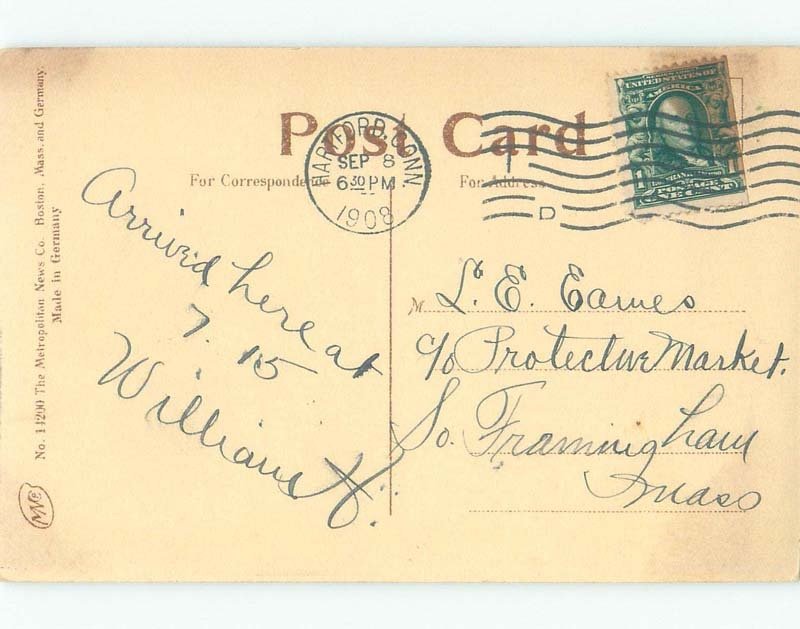 Post Card
For Correspondence
For Address
HARTFORD, CONN.
SEP 8
6 30 PM
1908
D
UNITED STATES OF
AMERICA
1 1
POSTAGE
ONE CENT
No. 14200 The Metropolitan News Co. Boston, Mass. and Germany.
Made in Germany
Arrived here at
7.15
William H.
M
L. E. Eames
c/o Protective Market.
So. Framingham
Mass